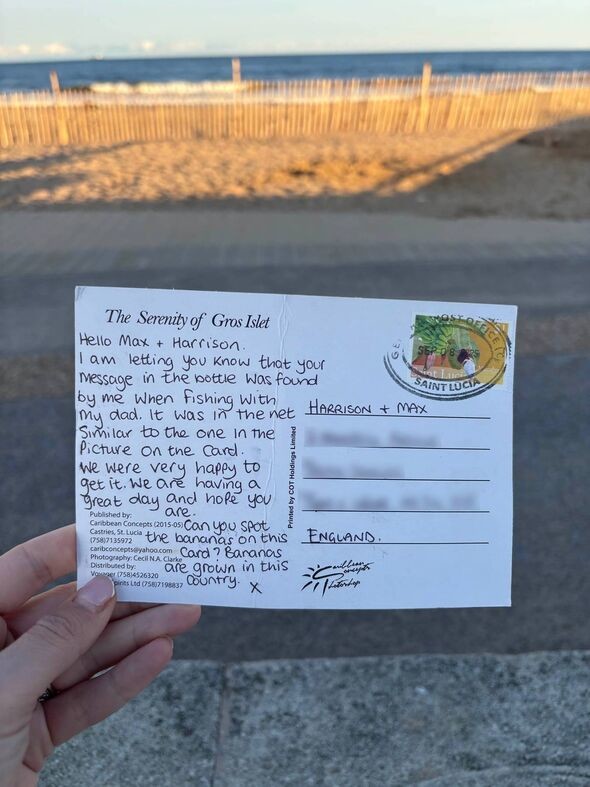 The Serenity of Gros Islet
Hello Max + Harrison.
I am letting you know that your
Message in the bottle was found
by me when fishing with
my dad. It was in the net
Similar to the one in the
Picture on the Card.
We were very happy to
get it. We are having a
great day and hope you
are.
Can you spot
the bananas on this
Card? Bananas
are grown in this
Country. X
Published by:
Caribbean Concepts (2015-05)
Castries, St. Lucia
(758)7135972
caribconcepts@yahoo.com
Photography: Cecil N.A. Clarke
Distributed by:
Voyager (758)4526320
Spirits Ltd (758)7198837
Printed by COT Holdings Limited
POST OFFICE
SAINT LUCIA
HARRISON + MAX
ENGLAND.
Caribbean
Concepts